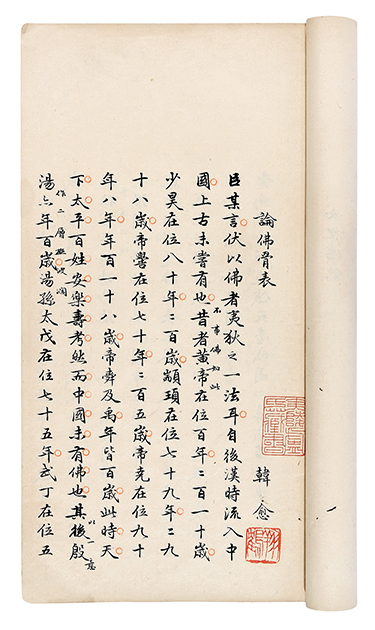 論佛骨表
韓愈
臣某言伏以佛者夷狄之一法耳自後漢時流入中
國上古未嘗有也昔者黃帝在位百年〻百一十歲
不事佛如此
少昊在位八十年〻百歲顓頊在位七十九年〻九
十八歲帝嚳在位七十年〻百五歲帝堯在位九十
年八年年百一十八歲帝舜及禹年皆百歲此時天
下太平百姓安樂壽考然而中國未有佛也其後殷
以一意
作二層
湯亦年百歲湯孫太戊在位七十五年武丁在位五